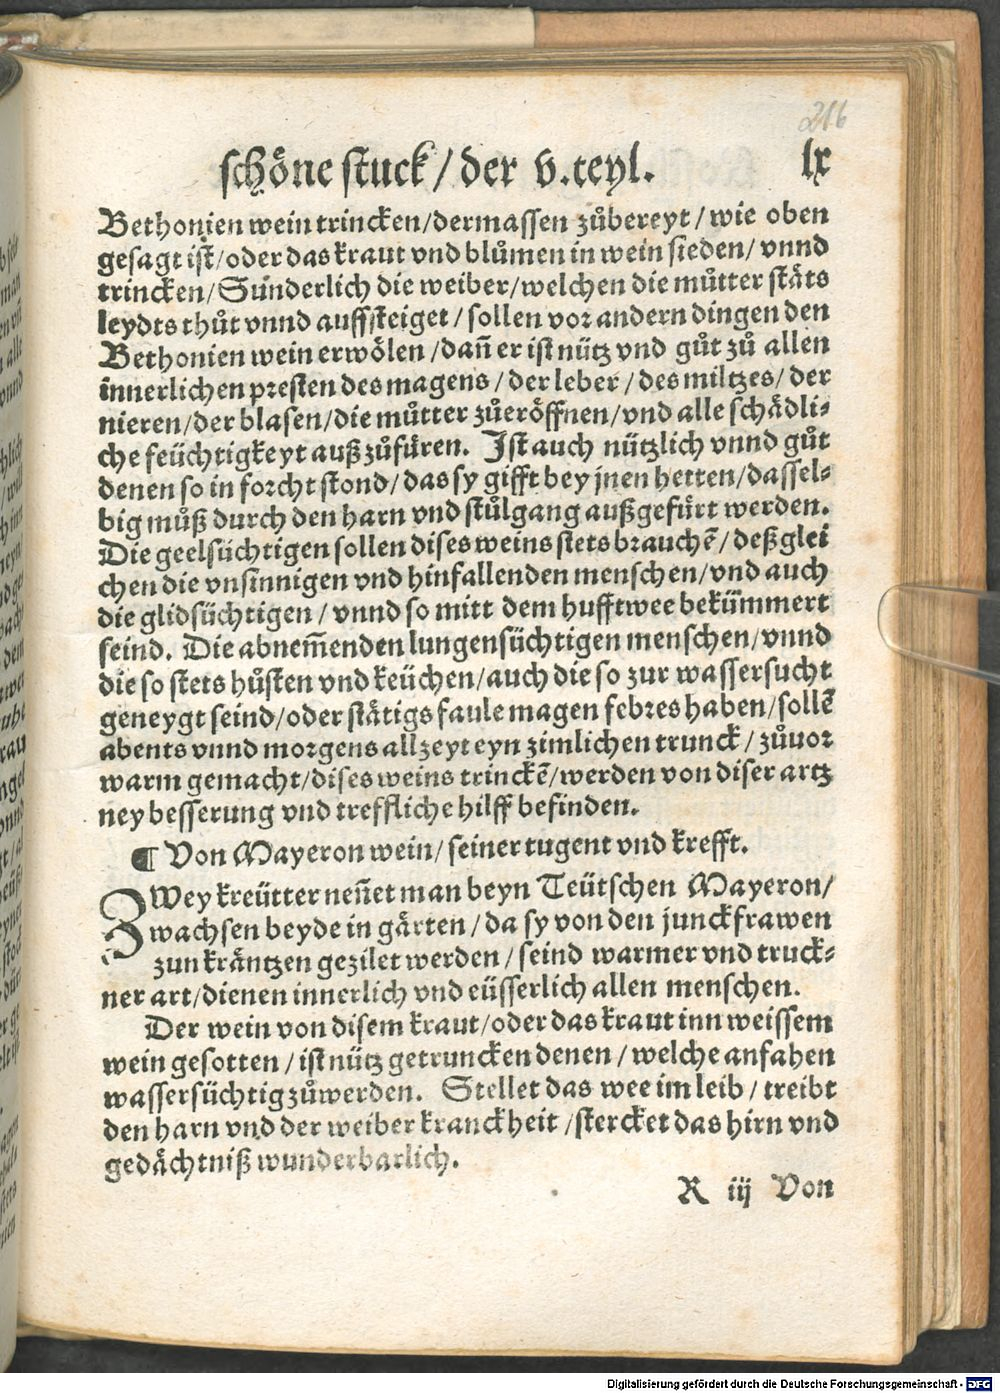 216
schöne stuck / der v.teyl. lx
Bethonien wein trincken / dermassen zůbereyt / wie oben
gesagt ist / oder das kraut vnd blůmen in wein sieden / vnnd
trincken / Sunderlich die weiber / welchen die můtter stäts
leydts thůt vnnd auffsteiget / sollen vor andern dingen den
Bethonien wein erwölen / dañ er ist nütz vnd gůt zů allen
innerlichen presten des magens / der leber / des miltzes / der
nieren / der blasen / die můtter zůeröffnen / vnd alle schädli⸗
che feüchtigkeyt auß zůfüren. Ist auch nützlich vnnd gůt
denen so in forcht stond / das sy gifft bey jnen hetten / dassel⸗
big můß durch den harn vnd stůlgang außgefürt werden.
Die geelsüchtigen sollen dises weins stets brauchẽ / deßglei
chen die vnsinnigen vnd hinfallenden menschen / vnd auch
die glidsüchtigen / vnnd so mitt dem hufftwee bekümmert
seind. Die abnem̃enden lungensüchtigen menschen / vnnd
die so stets hůsten vnd keüchen / auch die so zur wassersucht
geneygt seind / oder stätigs faule magen febres haben / sollẽ
abents vnnd morgens allzeyt eyn zimlichen trunck / zůuor
warm gemacht / dises weins trinckẽ / werden von diser artz
ney besserung vnd treffliche hilff befinden.
¶ Von Mayeron wein / seiner tugent vnd krefft.
ZWey kreütter neñet man beyn Teütschen Mayeron /
wachsen beyde in gärten / da sy von den junckfrawen
zun kräntzen gezilet werden / seind warmer vnd truck⸗
ner art / dienen innerlich vnd eüsserlich allen menschen.
Der wein von disem kraut / oder das kraut inn weissem
wein gesotten / ist nütz getruncken denen / welche anfahen
wassersüchtig zůwerden. Stellet das wee im leib / treibt
den harn vnd der weiber kranckheit / stercket das hirn vnd
gedächtniß wunderbarlich.
R iij Von
Digitalisierung gefördert durch die Deutsche Forschungsgemeinschaft - DFG